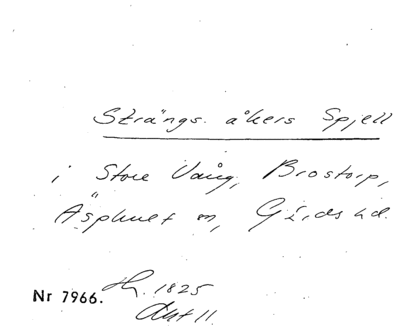 Strängs åkers Spjell
i Store Vång, Brostorp,
Äsphult sn, Gärds hd.
Nr 7966.
1825
Akt 11